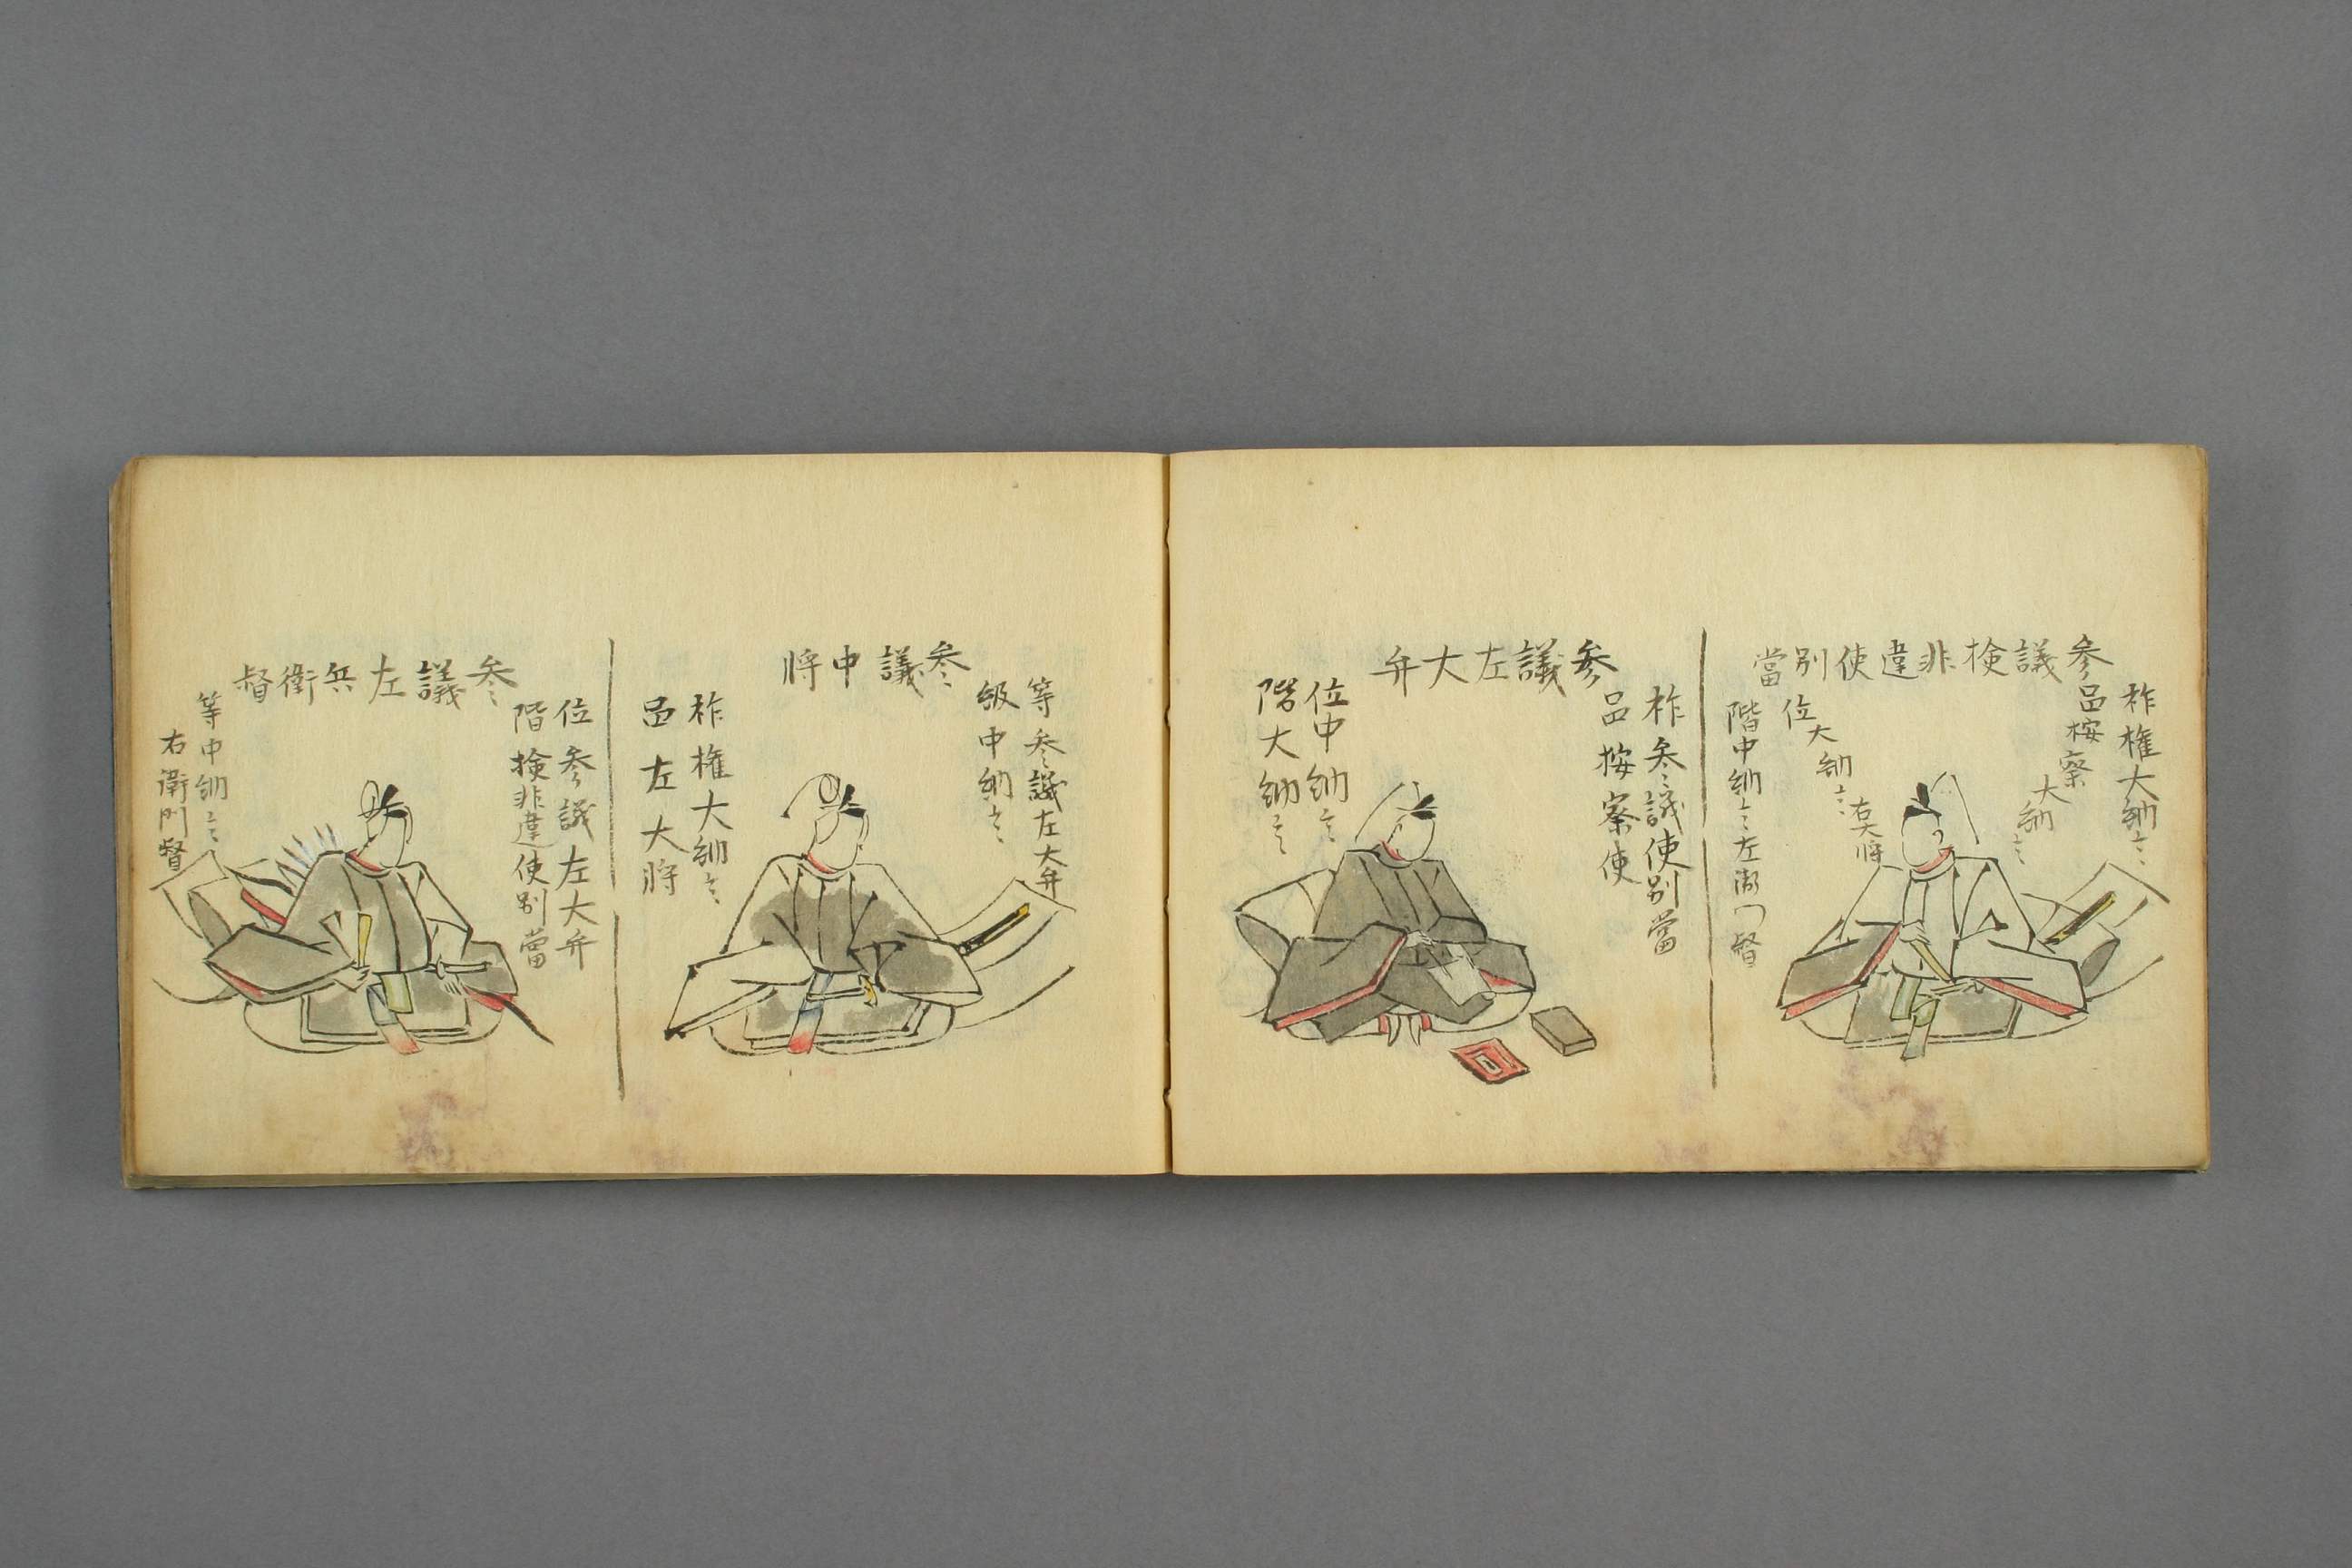 参議検非違使別當
柞権大納言
品按察
大納言
位大納言右大将
階中納言左衛門督
参議左大弁
柞参議使別當
品按察使
位中納言
階大納言
参議中将
等参議左大弁
級中納言
柞権大納言
品左大将
参議左兵衛督
位参議左大弁
階検非違使別當
等中納言
右衛門督